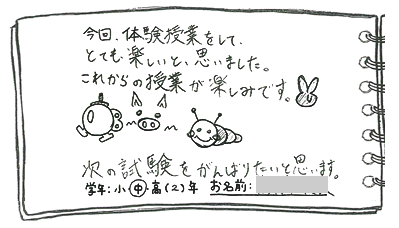 今回、体験授業をして、
とても楽しいと、思いました。
これからの授業が楽しみです。
次の試験をがんばりたいと思います。
学年：小・中・高（2）年 お名前：